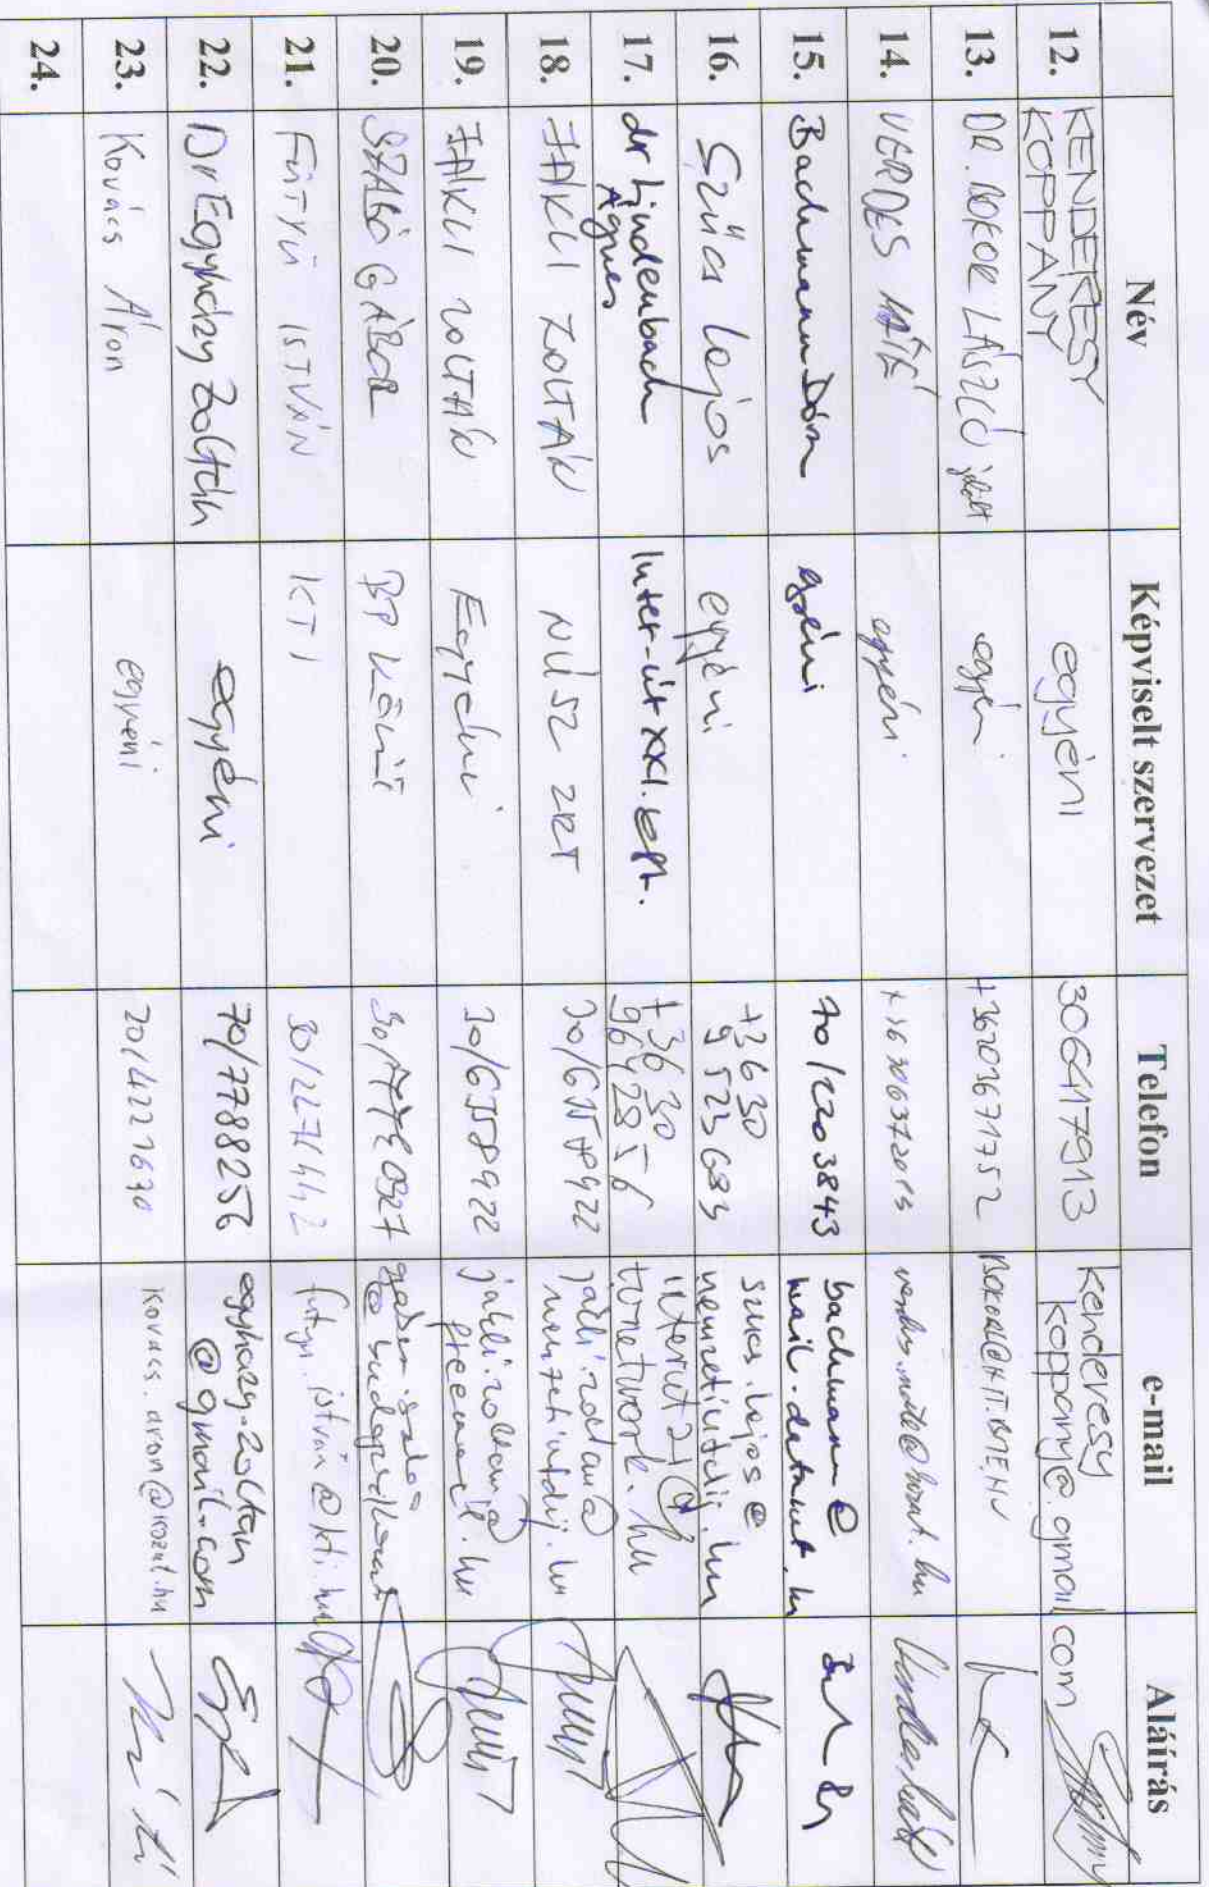 Név Képviselt szervezet Telefon e-mail Aláírás
12. KENDERESY KOPPÁNY egyéni 306417913 kenderesy koppany@gmail.com
13. DR. BOKOR LÁSZLÓ egyéni +36203671752 BOKORL@HIT.BME.HU
14. VERDES MÁTÉ egyéni +36306372013 verdes.mate@kozut.hu
15. Bachmann Dóra egyéni 70/2203843 bachmann@mail.datanet.hu
16. Szűcs Lajos egyéni +3630 9523683 szucs.lajos@nemzetiutdij.hu
17. dr Lindenbach Ágnes Inter-út XXI. Kft. +3630 9642856 interut21@t-online
18. JAKLI ZOLTÁN NÚSZ ZRT 30/6758922 jakli.zoltan@nemzetiutdij.hu
19. JAKLI ZOLTÁN Egyéni 30/6758922 jakli.zoltan@freemail.hu
20. SZABÓ GÁBOR BP KÖZÚT gabor.szabo@budapestkozut
21. FÜTYÜ ISTVÁN KTI 30/2276442 futyu.istvan@kti.hu
22. Dr Egyházy Zoltán egyéni 70/7788256 egyhazy.zoltan@gmail.com
23. Kovács Áron egyéni 20/4227630 kovacs.aron@kozut.hu
24.